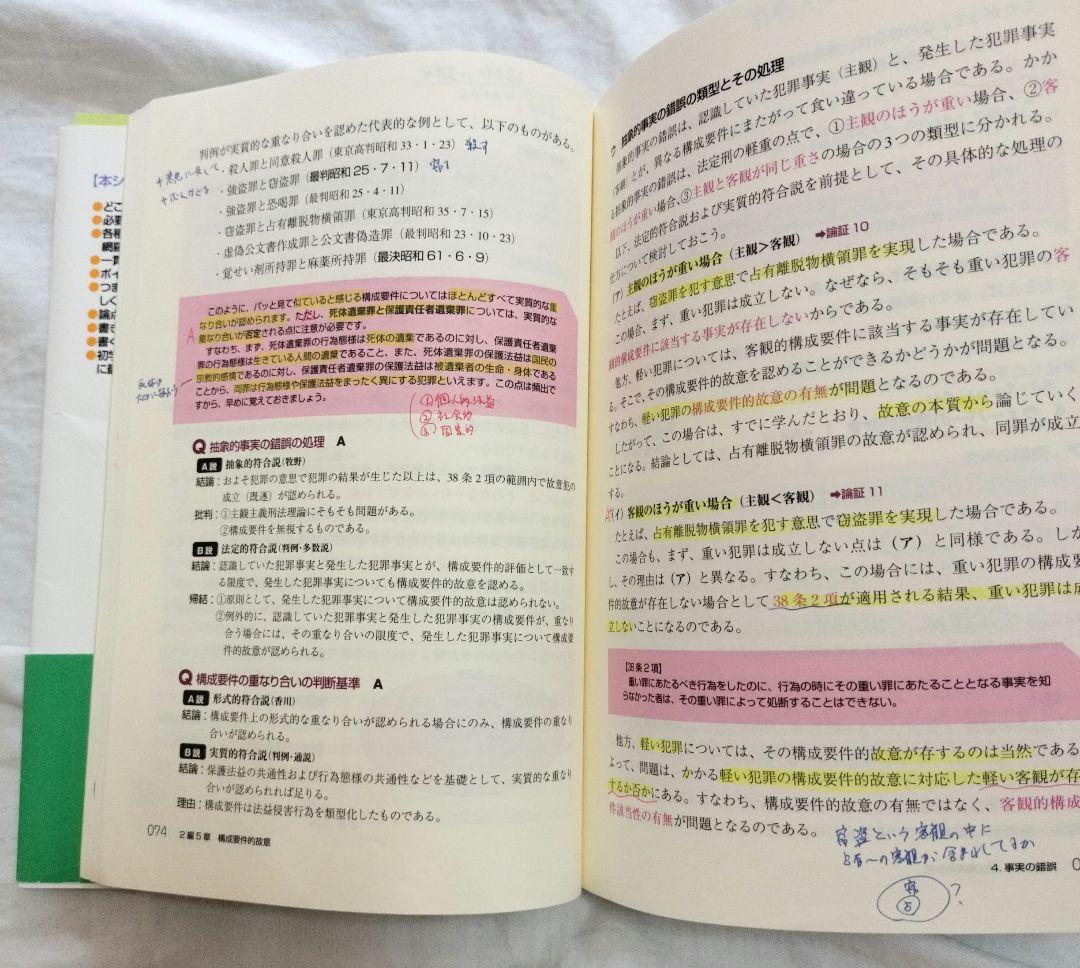 【本シ
●どこ
●必要
●各種
網羅
●一貫
●ポイ
●つま
しく
●論点
●書き
●書く
●初学
に最
判例が実質的な重なり合いを認めた代表的な例として、以下のものがある。
・殺人罪と同意殺人罪（東京高判昭和33・1・23）
・強盗罪と窃盗罪（最判昭和25・7・11）
・強盗罪と恐喝罪（最判昭和25・4・11）
・窃盗罪と占有離脱物横領罪（東京高判昭和35・7・15）
・虚偽公文書作成罪と公文書偽造罪（最判昭和23・10・23）
・覚せい剤所持罪と麻薬所持罪（最決昭和61・6・9）
このように、パッと見て似ていると感じる構成要件についてはほとんどすべて実質的な重
なり合いが認められます。ただし、死体遺棄罪と保護責任者遺棄罪については、実質的な
重なり合いが否定される点に注意が必要です。
すなわち、まず、死体遺棄罪の行為態様は死体の遺棄であるのに対し、保護責任者遺棄
罪の行為態様は生きている人間の遺棄であること、また、死体遺棄罪の保護法益は国民の
宗教的感情であるのに対し、保護責任者遺棄罪の保護法益は被遺棄者の生命・身体である
ことから、両罪は行為態様や保護法益をまったく異にする犯罪といえます。この点は頻出で
すから、早めに覚えておきましょう。
A
①個人的法益
②社会的
③国家的
Q 抽象的事実の錯誤の処理 A
A説 抽象的符合説（牧野）
結論：およそ犯罪の意思で犯罪の結果が生じた以上は、38条2項の範囲内で故意犯の
成立（既遂）が認められる。
批判：①主観主義刑法理論にそもそも問題がある。
②構成要件を無視するものである。
B説 法定的符合説（判例・多数説）
結論：認識していた犯罪事実と発生した犯罪事実とが、構成要件的評価として一致す
る限度で、発生した犯罪事実についても構成要件的故意を認める。
帰結：①原則として、発生した犯罪事実について構成要件的故意は認められない。
②例外的に、認識していた犯罪事実と発生した犯罪事実の構成要件が、重なり
合う場合には、その重なり合いの限度で、発生した犯罪事実について構成要
件的故意が認められる。
Q 構成要件の重なり合いの判断基準 A
A説 形式的符合説（香川）
結論：構成要件上の形式的な重なり合いが認められる場合にのみ、構成要件の重なり
合いが認められる。
B説 実質的符合説（判例・通説）
結論：保護法益の共通性および行為態様の共通性などを基礎として、実質的な重なり
合いが認められれば足りる。
理由：構成要件は法益侵害行為を類型化したものである。
074 2編5章 構成要件的故意
ウ 抽象的事実の錯誤の類型とその処理
抽象的事実の錯誤は、認識していた犯罪事実（主観）と、発生した犯罪事実
（客観）とが、異なる構成要件にまたがって食い違っている場合である。かか
る抽象的事実の錯誤は、法定刑の軽重の点で、①主観のほうが重い場合、②客
観のほうが重い場合、③主観と客観が同じ重さの場合の3つの類型に分かれる。
以下、法定的符合説および実質的符合説を前提として、その具体的な処理の
仕方について検討しておこう。
（ア）主観のほうが重い場合（主観＞客観） ➡論証10
たとえば、窃盗罪を犯す意思で占有離脱物横領罪を実現した場合である。
この場合、まず、重い犯罪は成立しない。なぜなら、そもそも重い犯罪の客
観的構成要件に該当する事実が存在しないからである。
他方、軽い犯罪については、客観的構成要件に該当する事実が存在してい
る。そこで、その構成要件的故意を認めることができるかどうかが問題となる。
すなわち、軽い犯罪の構成要件的故意の有無が問題となるのである。
したがって、この場合は、すでに学んだとおり、故意の本質から論じていく
ことになる。結論としては、占有離脱物横領罪の故意が認められ、同罪が成立
する。
A（イ）客観のほうが重い場合（主観＜客観） ➡論証11
たとえば、占有離脱物横領罪を犯す意思で窃盗罪を実現した場合である。
この場合も、まず、重い犯罪は成立しない点は（ア）と同様である。しか
し、その理由は（ア）と異なる。すなわち、この場合には、重い犯罪の構成要
件的故意が存在しない場合として38条2項が適用される結果、重い犯罪は成
立しないことになるのである。
【38条2項】
重い罪にあたるべき行為をしたのに、行為の時にその重い罪にあたることとなる事実を知
らなかった者は、その重い罪によって処断することはできない。
他方、軽い犯罪については、その構成要件的故意が存するのは当然である
よって、問題は、かかる軽い犯罪の構成要件的故意に対応した軽い客観が存
するか否かにある。すなわち、構成要件的故意の有無ではなく、客観的構成
件該当性の有無が問題となるのである。
窃盗という客観の中に
占有〜の客観が含まれてるか
窃
占
?
4. 事実の錯誤